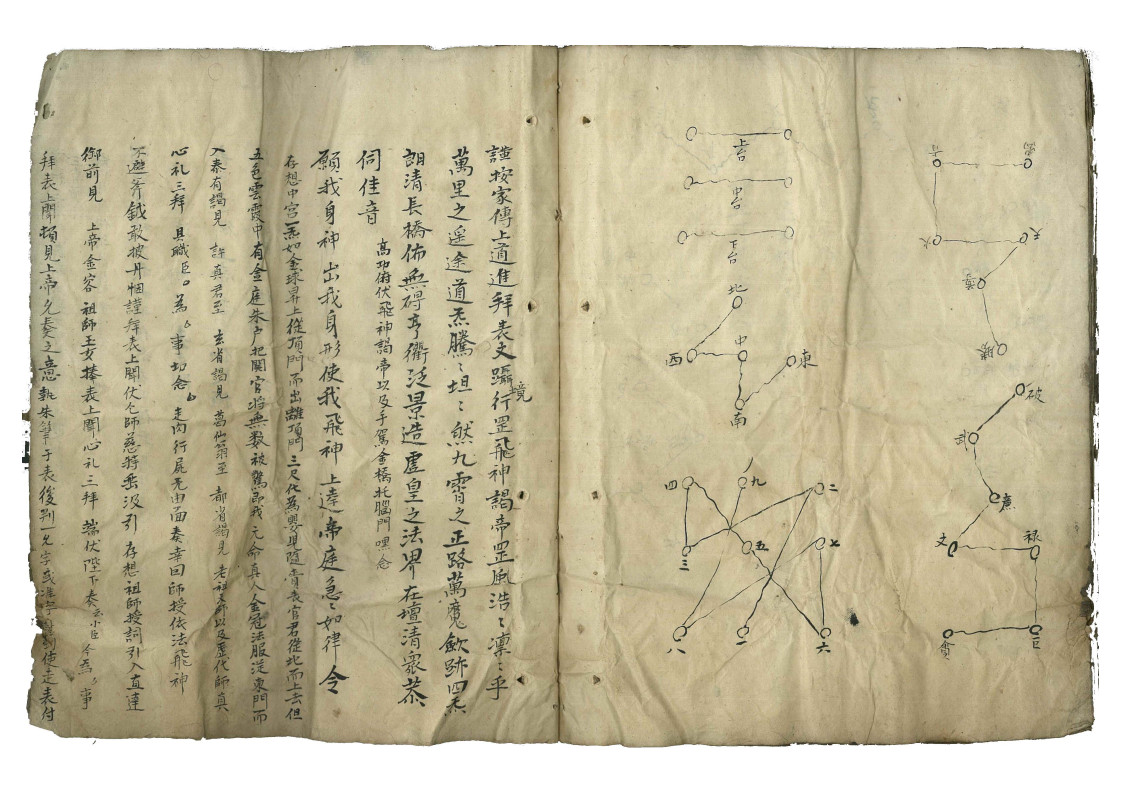 破
武
廉
禄
文
巨
貪
上台
中台
下台
北
西 中 東
南
四 九 二
三 五 七
八 一 六
謹按家傳上道進拜表文躡行罡飛神謁帝罡風浩〻凛〻乎
境
萬里之遥途道炁騰〻坦〻然九霄之正路萬魔歛跡四炁
朗清長橋佈無碍亨衢泛景造虚皇之法界在壇清衆恭
伺佳音 高功俯伏飛神謁帝以及手駕金橋托腦門嘿念
願我身神出我身形使我飛神上達帝庭急〻如律令
存想中宫一炁如金球昇上從頂門而出離頂門三尺化為嬰兒隨青衣官君從北而上去但
五色雲霞中有金庭朱户把關官将無数被驚即我元命真人金冠法服從東門而
入泰有謁見 許真君至 玄省謁見 葛仙翁至 都省謁見 老祖天師以及歷代師真
心礼三拜 具職臣〇為〻事切念〻走肉行屍无由面奏幸囙師授依法飛神
不避斧鉞敢披丹悃謹拜表上聞伏乞師慈特垂汲引 存想祖師授詞引入直達
御前見 上帝金容 祖師玉女捧表上聞心礼三拜 端伏陛下奏云小臣今為〻事
拜表上聞頓見上帝允奏之意執朱筆于表後判一允字或准字使走表付